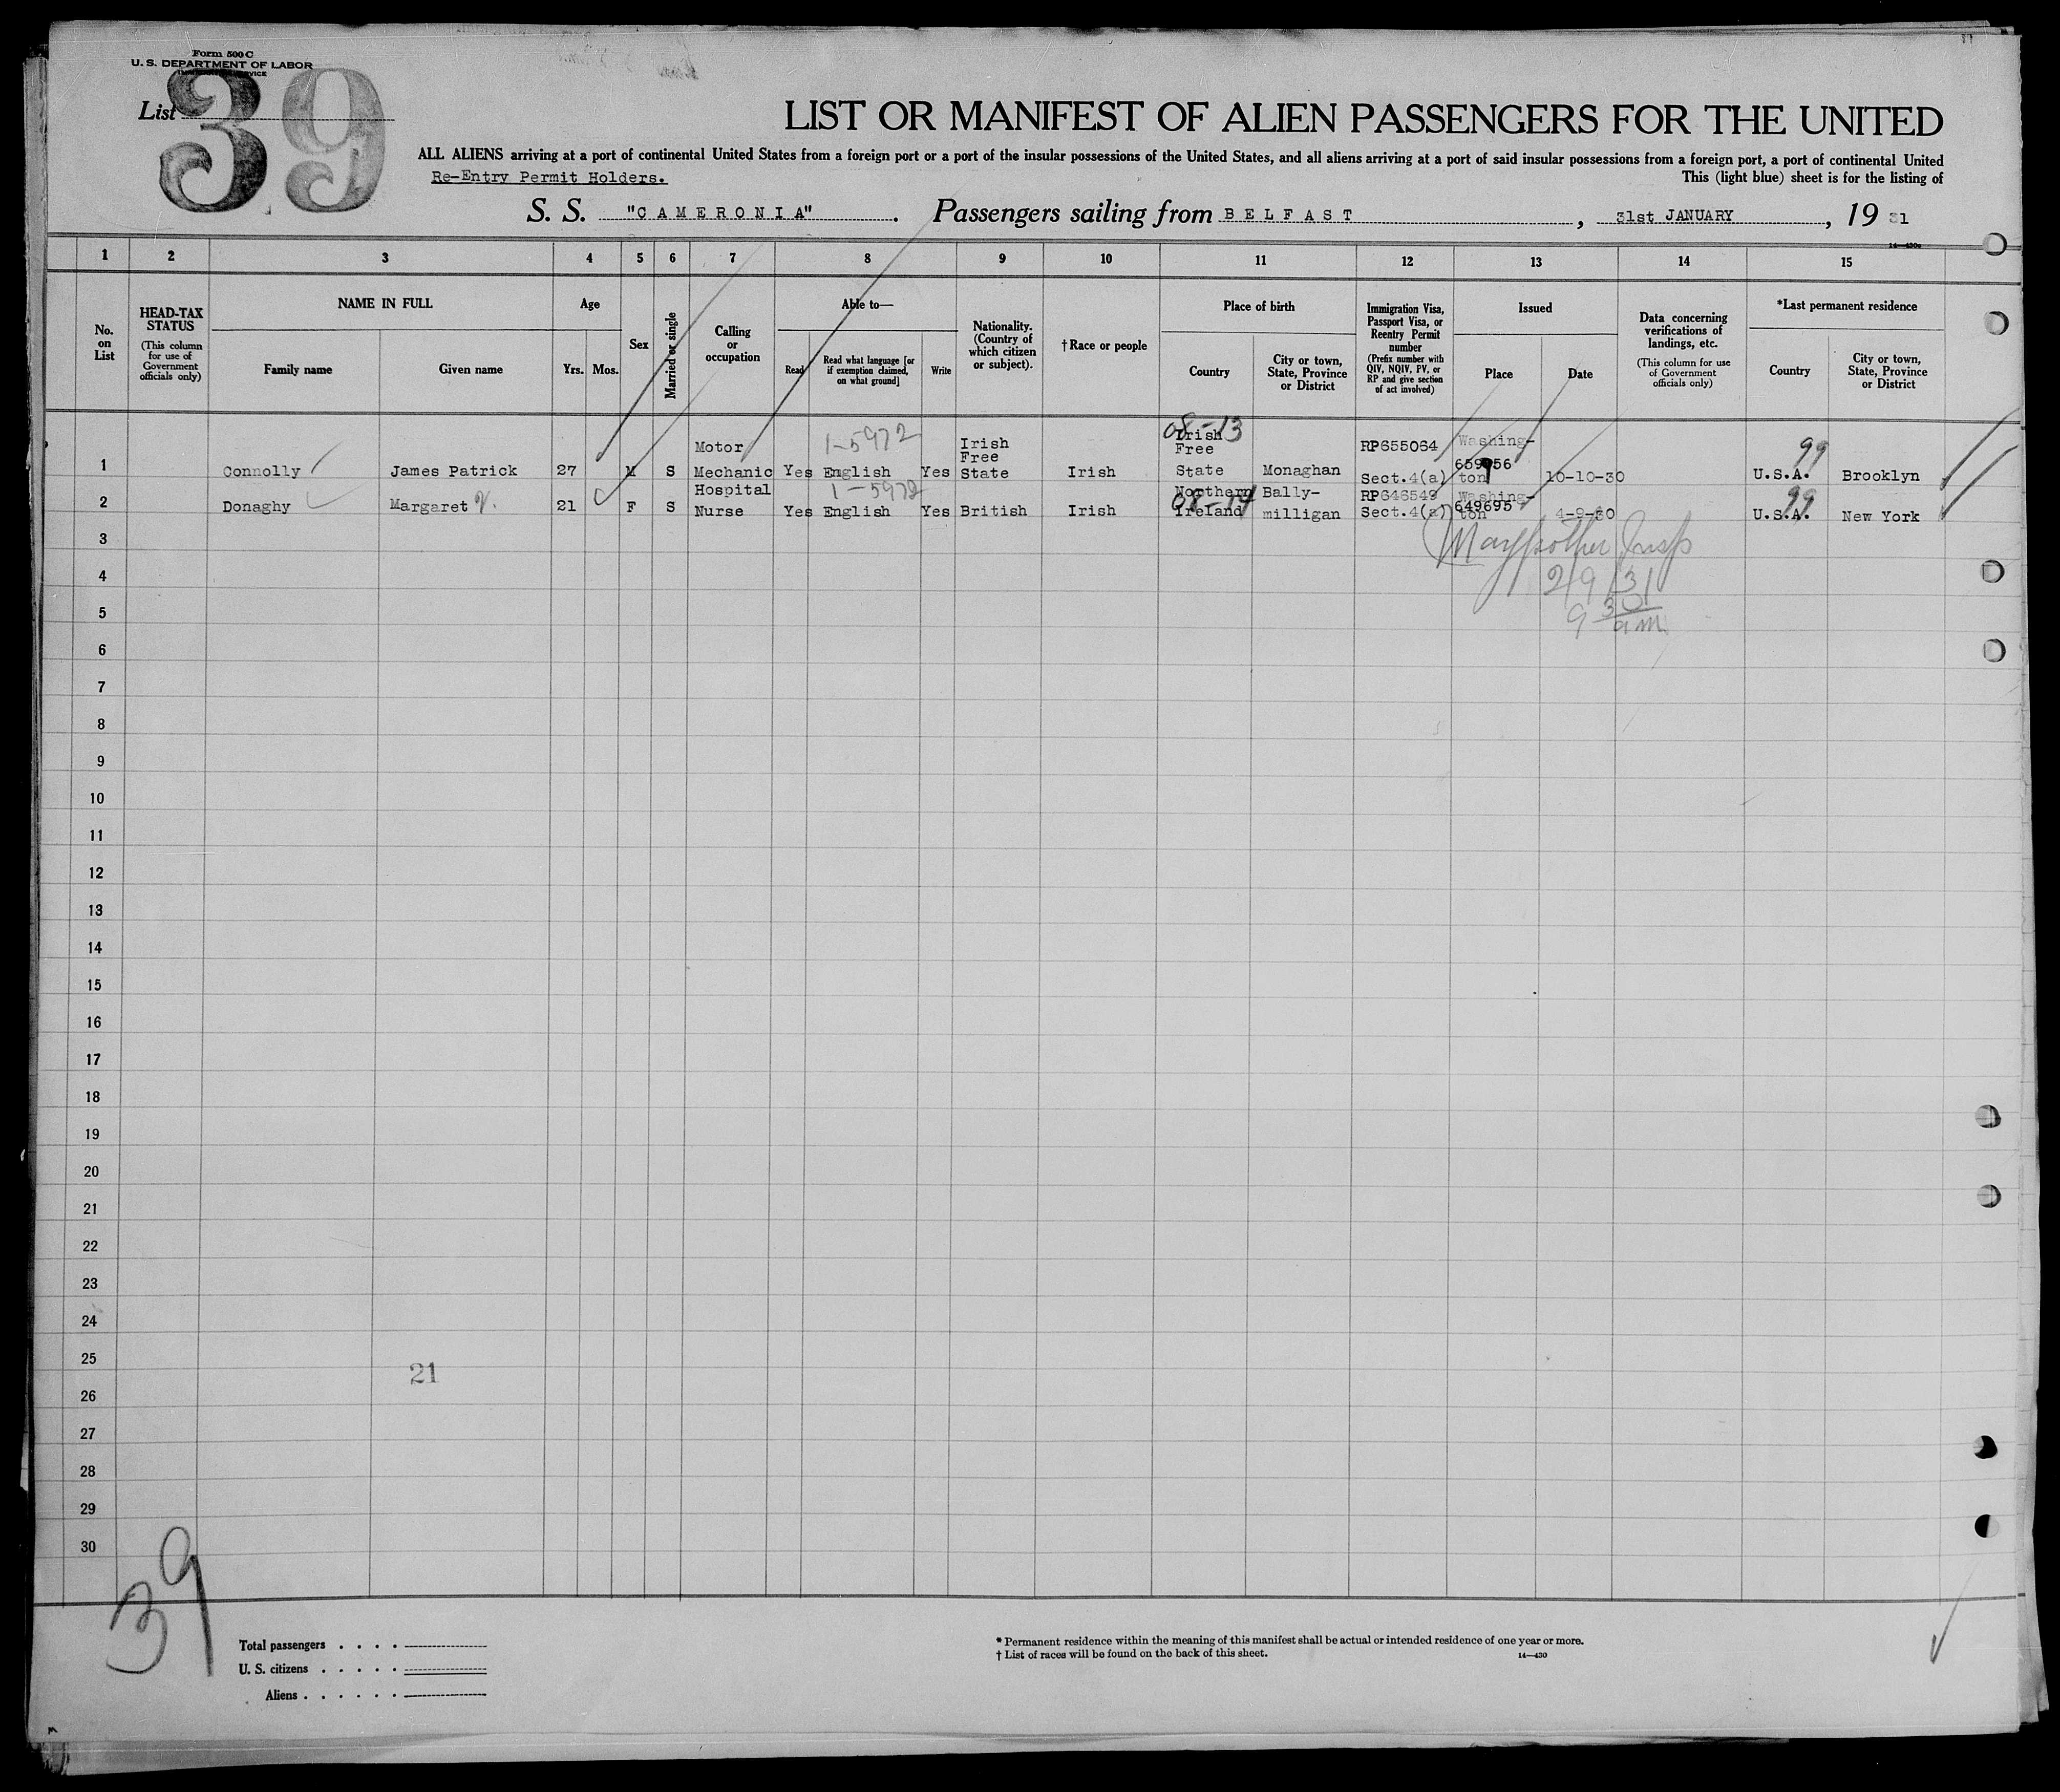 Form 500 C
U. S. DEPARTMENT OF LABOR
List 39
LIST OR MANIFEST OF ALIEN PASSENGERS FOR THE UNITED
ALL ALIENS arriving at a port of continental United States from a foreign port or a port of the insular possessions of the United States, and all aliens arriving at a port of said insular possessions from a foreign port, a port of continental United
Re-Entry Permit Holders.
This (light blue) sheet is for the listing of
S. S. "CAMERONIA" . Passengers sailing from BELFAST , 31st JANUARY , 19 31
1 2 3 4 5 6 7 8 9 10 11 12 13 14 15
No. on List
HEAD-TAX STATUS
(This column for use of Government officials only)
NAME IN FULL
Family name
Given name
Age
Yrs. Mos.
Sex
Married or single
Calling or occupation
Able to—
Read
Read what language [or if exemption claimed, on what ground]
Write
Nationality. (Country of which citizen or subject).
†Race or people
Place of birth
Country
City or town, State, Province or District
Immigration Visa, Passport Visa, or Reentry Permit number
(Prefix number with QIV, NQIV, PV, or RP and give section of act involved)
Issued
Place
Date
Data concerning verifications of landings, etc.
(This column for use of Government officials only)
*Last permanent residence
Country
City or town, State, Province or District
08-13
Motor 1-5972 Irish Free Irish Free RP655064 Washing- 99
659956
1 Connolly James Patrick 27 M S Mechanic Yes English Yes State Irish State Monaghan Sect.4(a) ton 10-10-30 U.S.A. Brooklyn
Hospital 1-5972 Northern Bally- RP646549 Washing- 99
08-14 649695
2 Donaghy Margaret V. 21 F S Nurse Yes English Yes British Irish Ireland milligan Sect.4(a) ton 4-9-30 U.S.A. New York
3
Insp
4
2/9/31
5
9 30 am
6
7
8
9
10
11
12
13
14
15
16
17
18
19
20
21
22
23
24
25
21
26
27
28
29
30
39
Total passengers
U. S. citizens
Aliens
* Permanent residence within the meaning of this manifest shall be actual or intended residence of one year or more.
† List of races will be found on the back of this sheet.
14—430